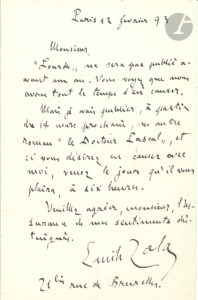 Paris 12 février 93
Monsieur,
"Lourdes" ne sera pas publié a-
vant un an. Vous voyez que nous
avons tout le temps d'en causer.
Mais je vais publier, à partir
du 18 mars prochain, un autre
roman "le Docteur Pascal", et
si vous désirez en causer avec
moi, venez le jour qu'il vous
plaira, à six heures.
Veuillez agréer, monsieur, l'as-
surance de mes sentiments dis-
tingués.
Emile Zola
21 bis rue de Bruxelles.